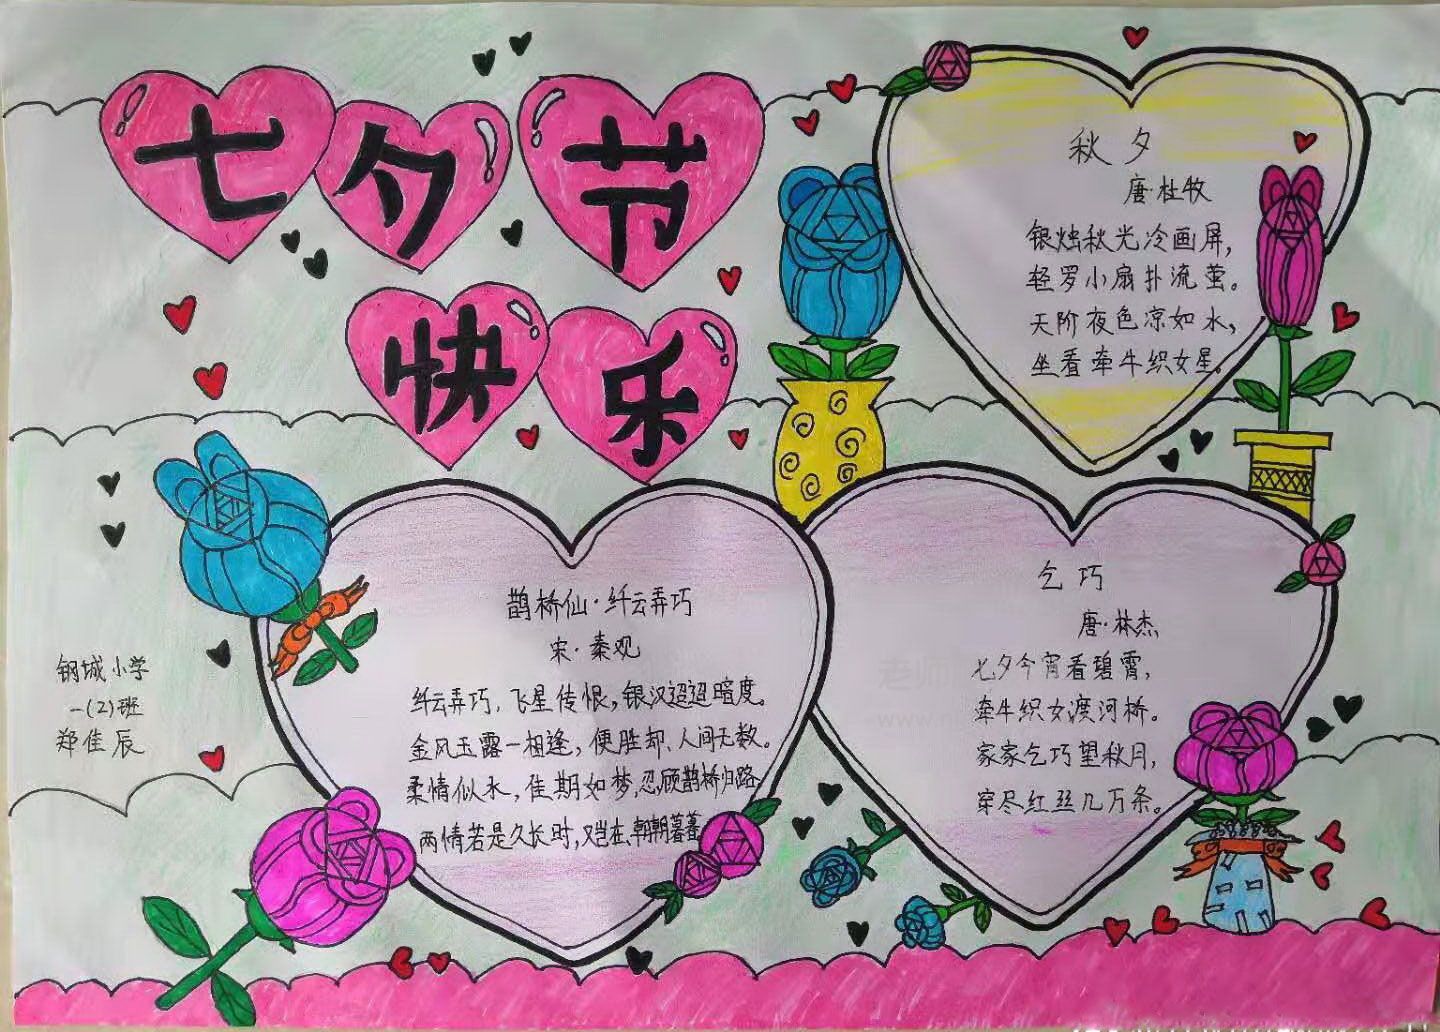 七夕节
快乐
秋夕
唐·杜牧
银烛秋光冷画屏，
轻罗小扇扑流萤。
天阶夜色凉如水，
坐看牵牛织女星。
鹊桥仙·纤云弄巧
宋·秦观
纤云弄巧，飞星传恨，银汉迢迢暗度。
金风玉露一相逢，便胜却、人间无数。
柔情似水，佳期如梦，忍顾鹊桥归路
两情若是久长时，又岂在、朝朝暮暮
乞巧
唐·林杰
七夕今宵看碧霄，
牵牛织女渡河桥。
家家乞巧望秋月，
穿尽红丝几万条。
钢城小学
一(2)班
郑佳辰